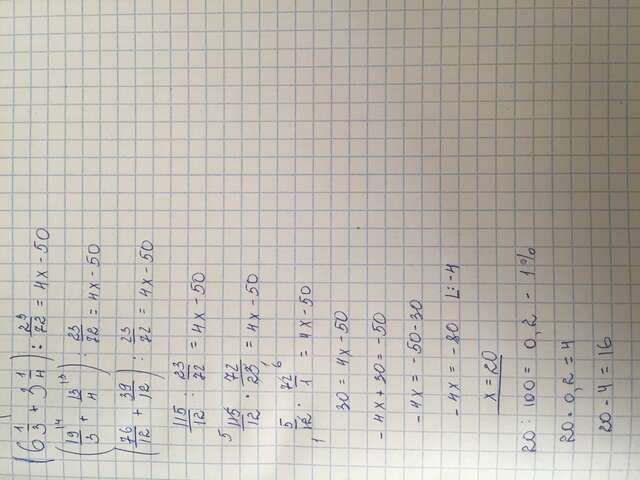 (6 1/3 + 3 1/4) : 23/72 = 4x - 50
(19/3 + 13/4) : 23/72 = 4x - 50
(76/12 + 39/12) : 23/72 = 4x - 50
115/12 : 23/72 = 4x - 50
5 115/12 · 72/23 1 = 4x - 50
5/12 1 · 72 6/1 = 4x - 50
30 = 4x - 50
-4x + 30 = -50
-4x = -50 - 30
-4x = -80 |: -4
x = 20
20 : 100 = 0,2 - 1%
20 · 0,2 = 4
20 - 4 = 16